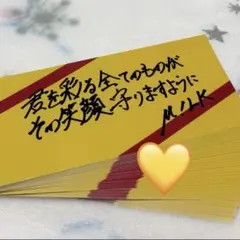 君を彩る全てのものが
その笑顔守りますように
M!LK